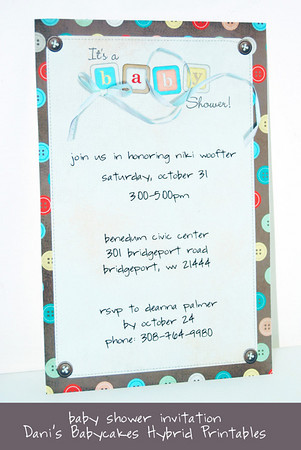 It's a
baby
Shower!
join us in honoring niki woofter
saturday, october 31
3:00-5:00pm
benedum civic center
301 bridgeport road
bridgeport, wv 21444
rsvp to deanna palmer
by october 24
phone: 308-764-9980
baby shower invitation
Dani's Babycakes Hybrid Printables